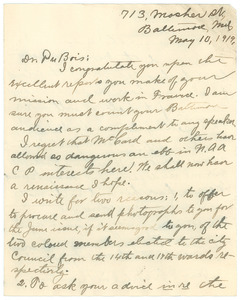 713, Mosher St.
Baltimore, Md.
May 10, 1919.
Dr. Du Bois:
I congratulate you upon the
excellent reports you make of your
mission and work in France. I am
sure you must count your Baltimore
audience as a compliment to any speaker.
I regret that Mc Card and others have
allowed so dangerous an ebb in N.A.A.
C.P. interests here! We shall now have
a renaissance I hope.
I write for two reasons: 1, to offer
to procure and send photographs to you for
the June issue, if it seems good to you, of the
two colored members elected to the city
Council from the 14th and 17th wards re-
spectively:
2. To ask your advice in re the